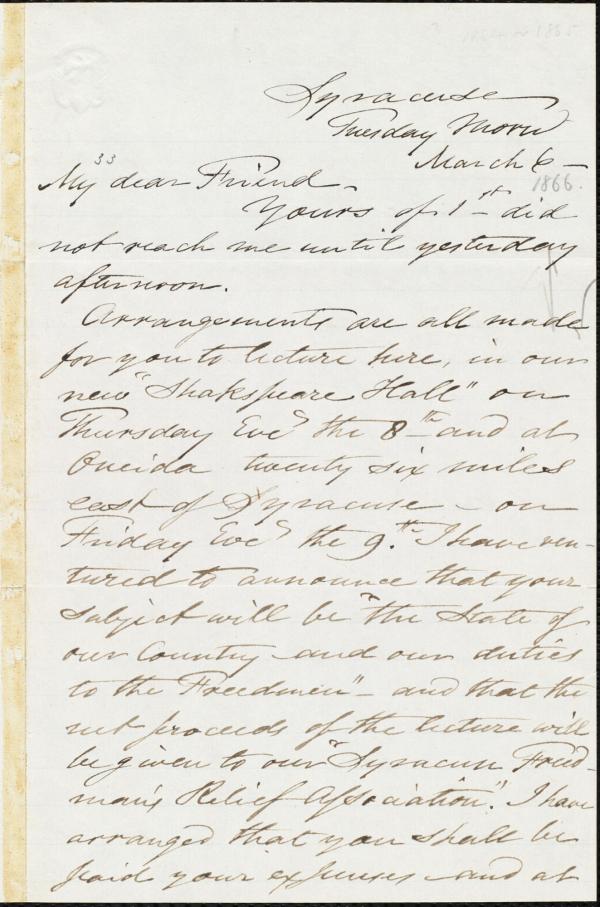 Syracuse
Tuesday Morn
March 6 -
1866.
33
My dear Friend -
Yours of 1st did
not reach me until yesterday
afternoon.
Arrangements are all made
for you to lecture here, in our
new "Shakspeare Hall" on
Thursday Eve the 8th and at
Oneida twenty six miles
east of Syracuse - on
Friday Eve the 9th. I have ven-
tured to announce that your
subject will be "the State of
our Country and our duties
to the Freedmen" - and that the
net proceeds of the lecture will
be given to our "Syracuse Freed-
man's Relief Association". I have
arranged that you shall be
paid your expenses - and at